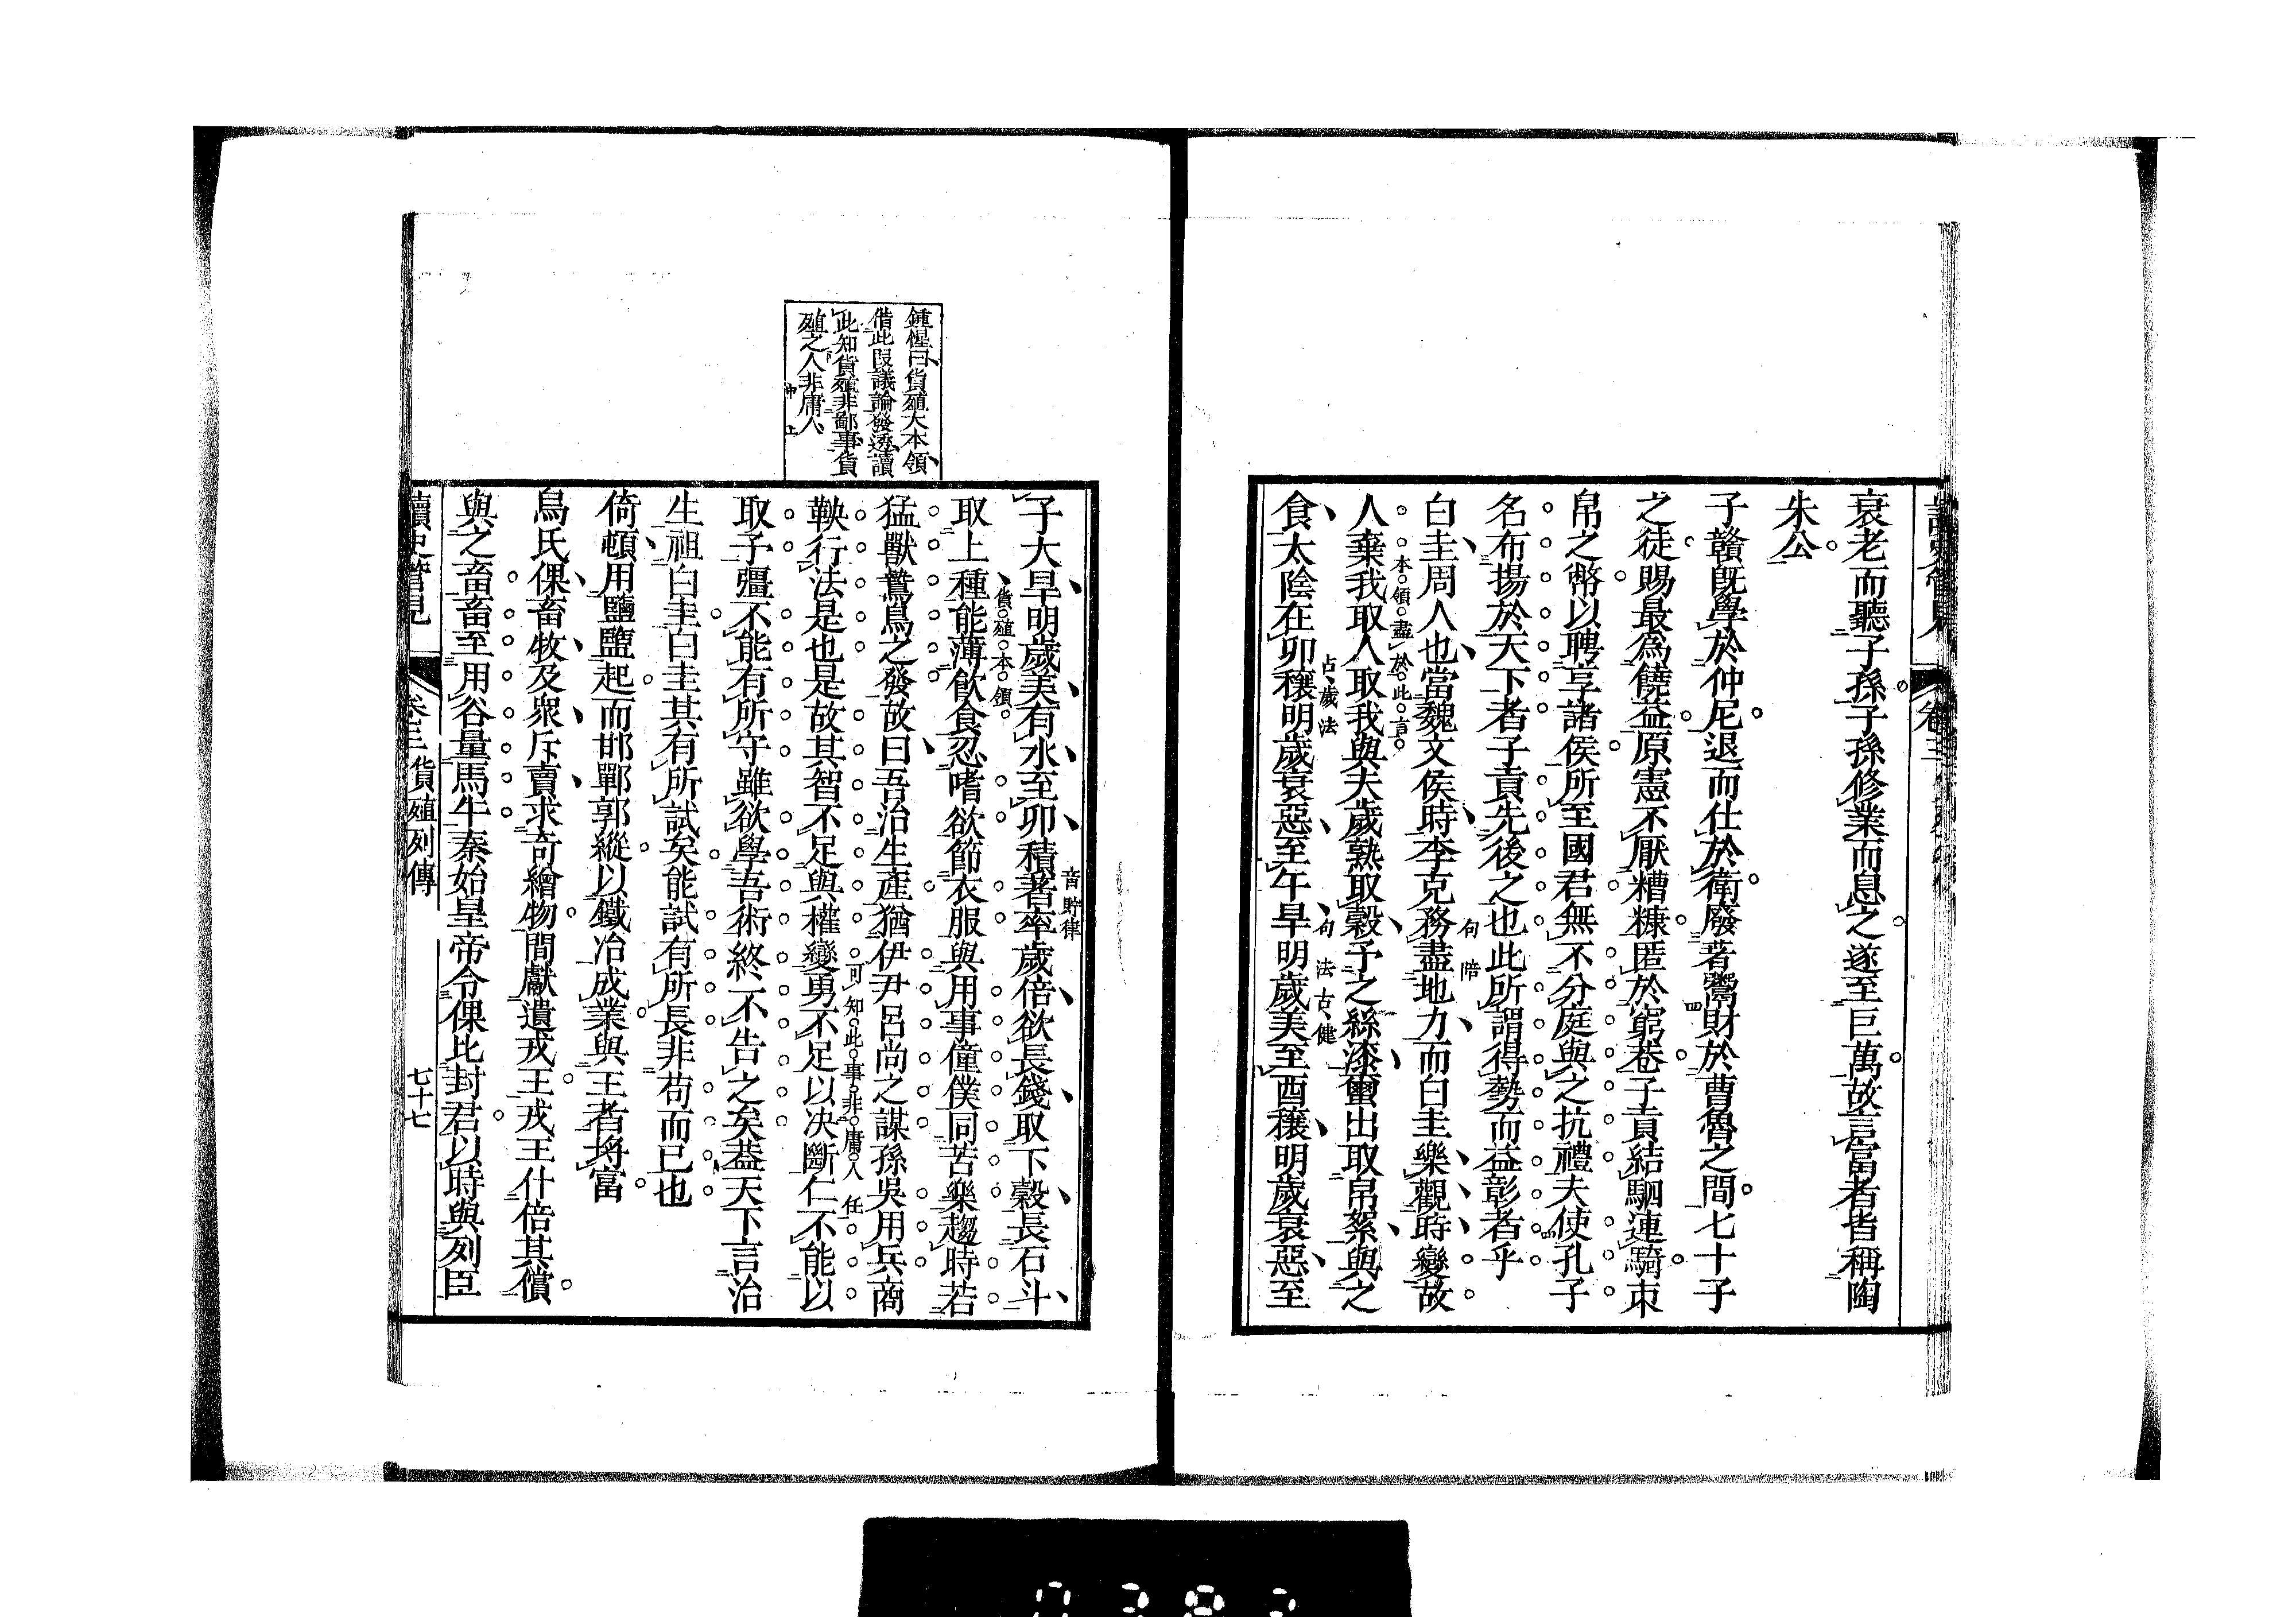 衰老而聽子孫子孫修業而息之遂至巨萬故言富者皆稱陶
朱公
子贛旣學於仲尼退而仕於衛廢著鬻財於曹魯之間七十子
之徒賜最爲饒益原憲不厭糟糠匿於窮巷子貢結駟連騎束
帛之幣以聘享諸侯所至國君無不分庭與之抗禮夫使孔子
名布揚於天下者子貢先後之也此所謂得勢而益彰者乎
句陪
白圭周人也當魏文侯時李克務盡地力而白圭樂觀時變故
本領盡於此言
人棄我取人取我與夫歲熟取穀予之絲漆繭出取帛絮與之
占歲法
句法古健
食太陰在卯穰明歲衰惡至午旱明歲美至酉穰明歲衰惡至
音貯律
子大旱明歲美有水至卯積著率歲倍欲長錢取下穀長石斗
貨殖本領
取上種能薄飮食忍嗜欲節衣服與用事僮僕同苦樂趨時若
猛獸鷙鳥之發故曰吾治生產猶伊尹呂尚之謀孫吳用兵商
可知此事非庸人任
鞅行法是也是故其智不足與權變勇不足以决斷仁不能以
取予彊不能有所守雖欲學吾術終不告之矣葢天下言治
生祖白圭白圭其有所試矣能試有所長非苟而已也
倚頓用鹽鹽起而邯鄲郭縱以鐵冶成業與王者埒富
烏氏倮畜牧及衆斥賣求奇繒物間獻遺戎王戎王什倍其償
與之畜畜至用谷量馬牛秦始皇帝令倮比封君以時與列臣
鍾惺曰貨殖大本領
借此段議論發透讀
此知貨殖非鄙事貨
殖之人非庸人
讀史管見
卷三 貨殖列傳
七十七